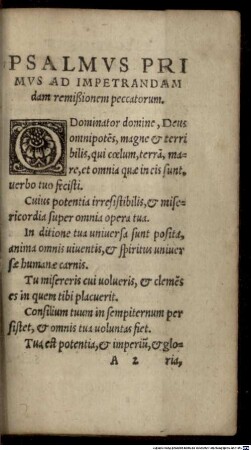 PSALMVS PRI
MVS AD IMPETRANDAM
dam remißionem peccatorum.
O Dominator domine, Deus
omnipotẽs, magne & terri
bilis, qui cœlum, terrã, ma-
re, et omnia quæ in eis sunt,
verbo tuo fecisti.
Cuius potentia irresistibilis, & mise-
ricordia super omnia opera tua.
In ditione tua uniuersa sunt posita,
anima omnis uiuentis, & spiritus uniuer
sæ humanæ carnis.
Tu misereris cui uolueris, & clemẽs
es in quem tibi placuerit.
Consilium tuum in sempiternum per
sistet, & omnis tua uoluntas fiet.
Tua est potentia, & imperiũ, & glo-
A 2 ria,